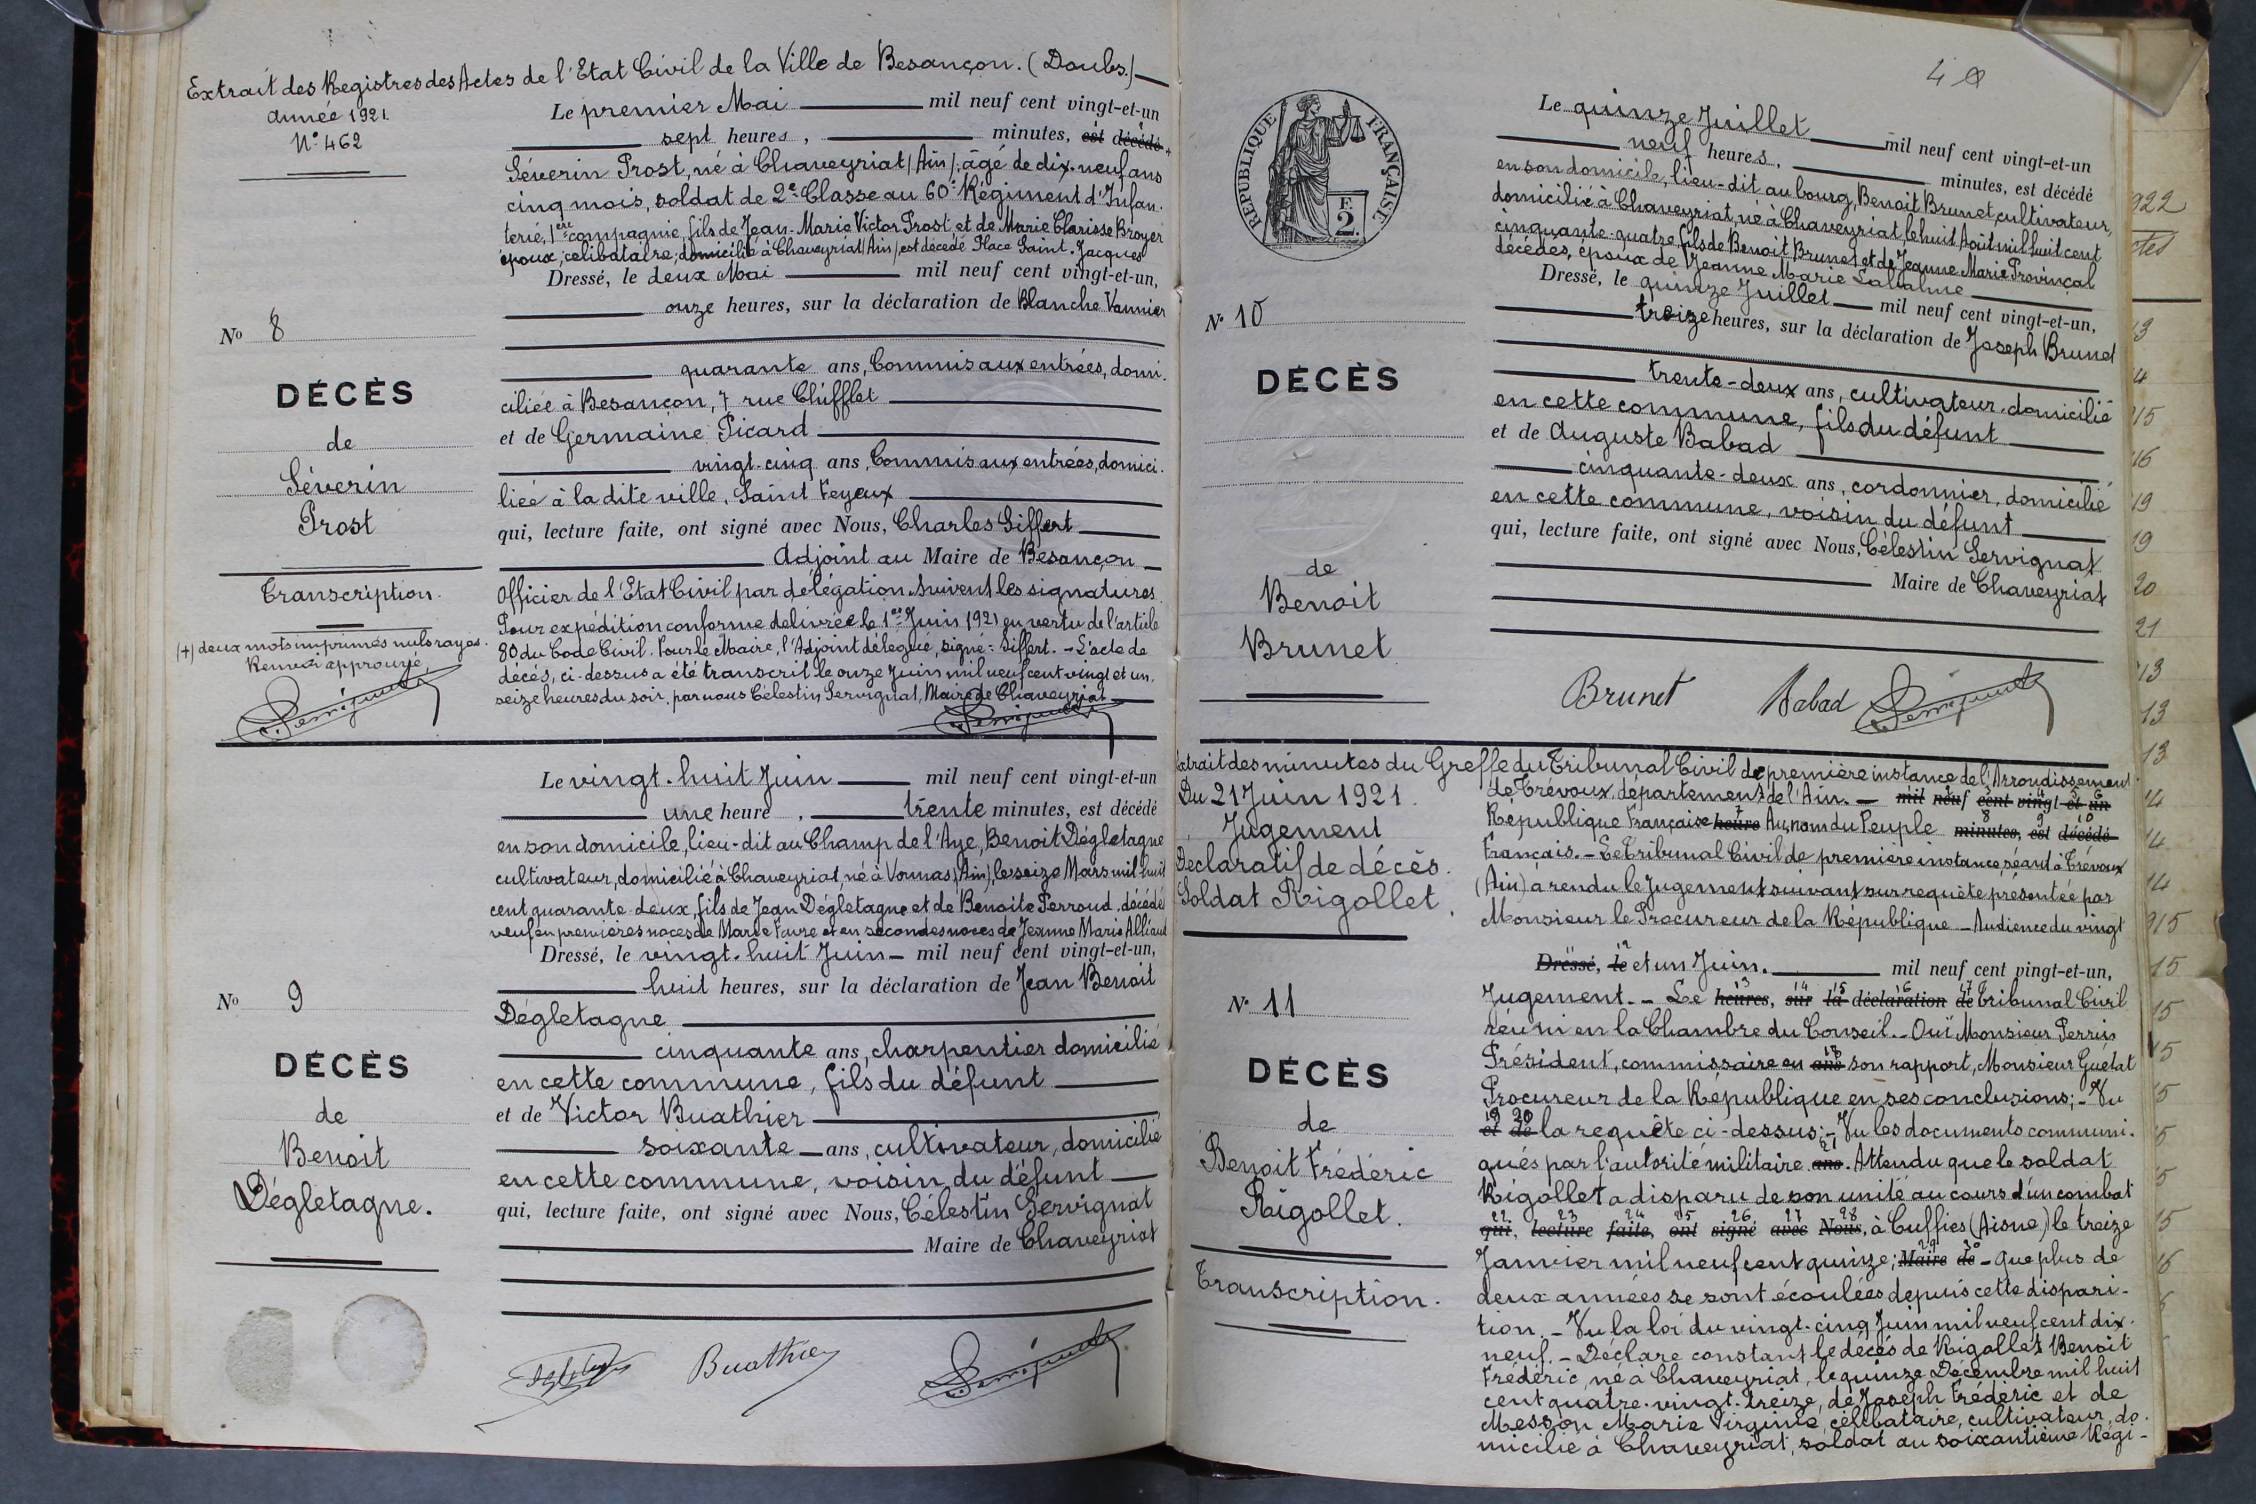 Extrait des Registres des Actes de l'Etat Civil de la Ville de Besançon. (Doubs.)
Année 1921.
N° 462
Le premier Mai mil neuf cent vingt-et-un
sept heures, minutes, est décédé +
Séverin Prost, né à Chaveyriat (Ain), âgé de dix-neuf ans
cinq mois, soldat de 2e Classe au 60e Régiment d'Infan-
terie, 1ère compagnie, fils de Jean-Marie Victor Prost et de Marie Clarisse Broyer
époux; célibataire; domicilié à Chaveyriat (Ain), est décédé Place Saint-Jacques
Dressé, le deux Mai mil neuf cent vingt-et-un,
onze heures, sur la déclaration de Blanche Vannier
quarante ans, Commis aux entrées, domi-
ciliée à Besançon, 7 rue Chifflet
et de Germaine Picard
vingt-cinq ans, Commis aux entrées, domici-
liée à la dite ville, Saint Feyeux
qui, lecture faite, ont signé avec Nous, Charles Siffert
Adjoint au Maire de Besançon
Officier de l'Etat Civil par délégation. Suivent les signatures.
Pour expédition conforme délivrée le 1er Juin 1921 en vertu de l'article
80 du Code Civil. Pour le Maire, l'Adjoint délégué, signé: Siffert. - L'acte de
décès, ci-dessus a été transcrit le onze Juin mil neuf cent vingt et un,
seize heures du soir, par nous Célestin Servignat, Maire de Chaveyriat
No 8
DÉCÈS
de
Séverin
Prost
Transcription.
(+) deux mots imprimés nuls rayés.
Renvoi approuvé,
Le vingt-huit Juin mil neuf cent vingt-et-un
une heure, trente minutes, est décédé
en son domicile, lieu-dit au Champ de l'Aye, Benoit Dégletagne
cultivateur, domicilié à Chaveyriat, né à Vonnas (Ain), le seize Mars mil huit
cent quarante-deux, fils de Jean Dégletagne et de Benoite Perroud, décédés
veuf en premières noces de Marie Favre et en secondes noces de Jeanne Marie Alliaud
Dressé, le vingt-huit Juin mil neuf cent vingt-et-un,
huit heures, sur la déclaration de Jean Benoit
Dégletagne
cinquante ans, charpentier domicilié
en cette commune, fils du défunt
et de Victor Buathier
soixante ans, cultivateur, domicilié
en cette commune, voisin du défunt
qui, lecture faite, ont signé avec Nous, Célestin Servignat
Maire de Chaveyriat
No 9
DÉCÈS
de
Benoit
Dégletagne.
Buathier
RÉPUBLIQUE FRANÇAISE
F.
2.
Le quinze Juillet mil neuf cent vingt-et-un
neuf heures, minutes, est décédé
en son domicile, lieu-dit au bourg, Benoit Brunet cultivateur,
domicilié à Chaveyriat, né à Chaveyriat, le huit Août mil huit cent
cinquante-quatre, fils de Benoit Brunet et de Jeanne Marie Provinçal
décédés, époux de Jeanne Marie Laballme
Dressé, le quinze Juillet mil neuf cent vingt-et-un,
treize heures, sur la déclaration de Joseph Brunet
trente-deux ans, cultivateur, domicilié
en cette commune, fils du défunt
et de Auguste Babad
cinquante-deux ans, cordonnier, domicilié
en cette commune, voisin du défunt
qui, lecture faite, ont signé avec Nous, Célestin Servignat
Maire de Chaveyriat
N° 10
DÉCÈS
de
Benoit
Brunet
Brunet Babad
Extrait des minutes du Greffe du Tribunal Civil de première instance de l'Arrondissement
de Trévoux, département de l'Ain. - mil neuf cent vingt-et-un
Du 21 Juin 1921.
Jugement
Déclaratif de décès.
Soldat Rigollet.
République Française heure Au nom du Peuple minutes, est décédé
Français. - Le Tribunal Civil de première instance, séant à Trévoux
(Ain) a rendu le Jugement suivant sur requête présentée par
Monsieur le Procureur de la République - Audience du vingt
Dressé, le et un Juin. mil neuf cent vingt-et-un,
Jugement. - Le heures, sur la déclaration de Tribunal Civil
réuni en la Chambre du Conseil. - Ouï Monsieur Perrin
Président, commissaire en ans son rapport, Monsieur Guélat
Procureur de la République en ses conclusions; - Vu
et de la requête ci-dessus; - Vu les documents communi-
qués par l'autorité militaire ans. Attendu que le soldat
Rigollet a disparu de son unité au cours d'un combat
qui, lecture faite, ont signé avec Nous, à Cuffies (Aisne) le treize
Janvier mil neuf cent quinze; Maire de - que plus de
deux années se sont écoulées depuis cette dispari-
tion. - Vu la loi du vingt-cinq Juin mil neuf cent dix-
neuf. - Déclare constant le décès de Rigollet Benoit
Frédéric, né à Chaveyriat, le quinze Décembre mil huit
cent quatre-vingt-treize, de Joseph Frédéric et de
Messon Marie Virginie, célibataire, cultivateur, do-
micilié à Chaveyriat, soldat au soixantième Régi-
N° 11
DÉCÈS
de
Benoit Frédéric
Rigollet.
Transcription.